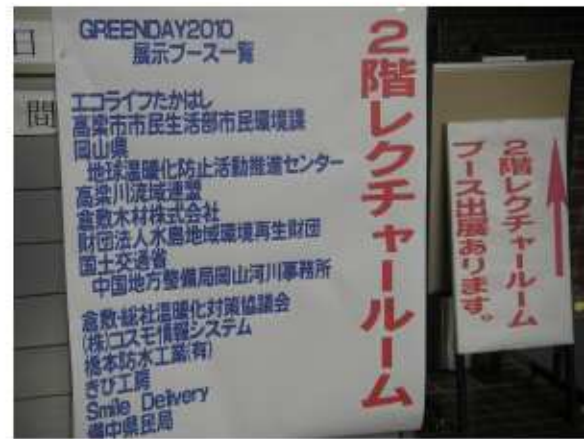 GREENDAY2010
展示ブース一覧
エコライフたかはし
高梁市市民生活部市民環境課
岡山県
地球温暖化防止活動推進センター
高梁川流域連盟
倉敷木材株式会社
財団法人水島地域環境再生財団
国土交通省
中国地方整備局岡山河川事務所
倉敷・総社温暖化対策協議会
(株)コスモ情報システム
橋本防水工業(有)
きび工房
Smile Delivery
備中県民局
2階レクチャールーム
2階レクチャールーム
ブース出展あります。
日
間